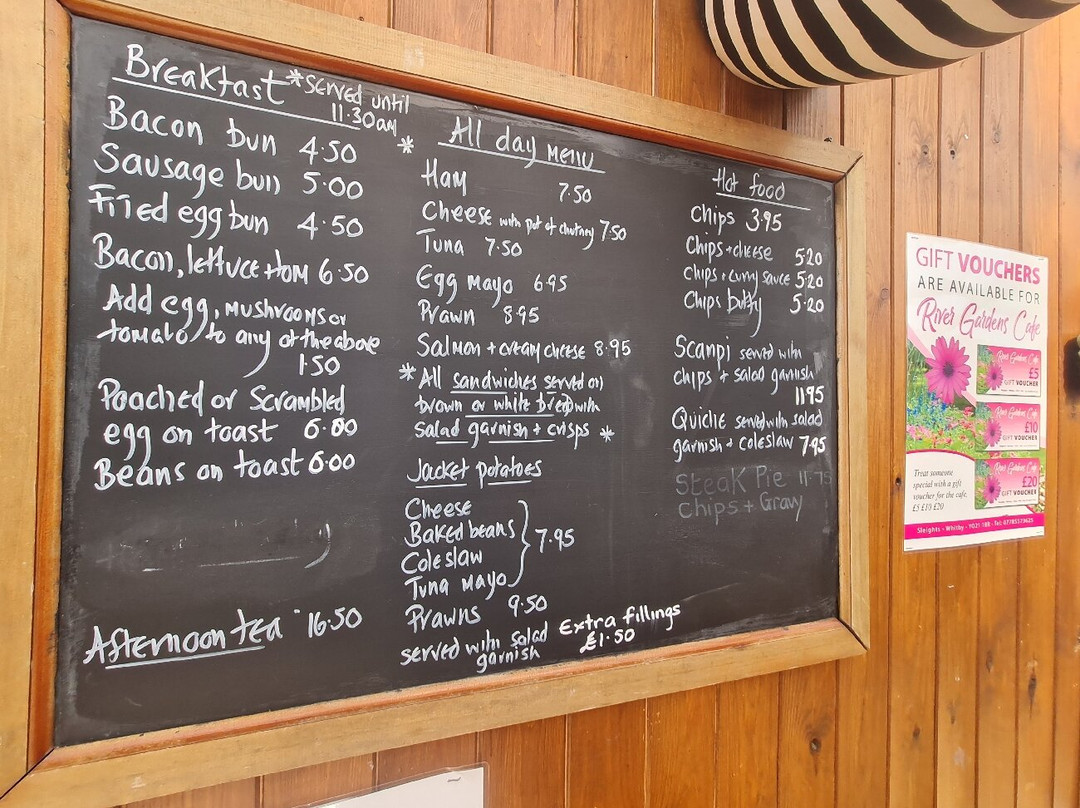 Breakfast *Served until
11.30am
Bacon bun 4.50
Sausage bun 5.00
Fried egg bun 4.50
Bacon, lettuce + tom 6.50
Add egg, mushrooms or
tomato, to any of the above
1.50
Poached or Scrambled
egg on toast 6.00
Beans on toast 6.00
Afternoon tea 16.50
* All day menu
Ham 7.50
Cheese with pot of chutney 7.50
Tuna 7.50
Egg Mayo 6.95
Prawn 8.95
Salmon + cream cheese 8.95
*All sandwiches served on
brown or white bred with
Salad garnish + crisps *
Jacket potatoes
Cheese
Baked beans
Coleslaw
Tuna Mayo
} 7.95
Prawns 9.50
served with salad
garnish
Extra fillings
£1.50
Hot food
Chips 3.95
Chips + cheese 5.20
Chips + curry sauce 5.20
Chips butty 5.20
Scampi served with
chips + salad garnish
11.95
Quiche served with salad
garnish + coleslaw 7.95
Steak Pie 11.75
Chips + Gravy
GIFT VOUCHERS
ARE AVAILABLE FOR
River Gardens Cafe
River Gardens Cafe
£5
GIFT VOUCHER
River Gardens Cafe
£10
GIFT VOUCHER
River Gardens Cafe
£20
GIFT VOUCHER
Treat someone
special with a gift
voucher for the cafe,
£5 £10 £20
Sleights • Whitby •